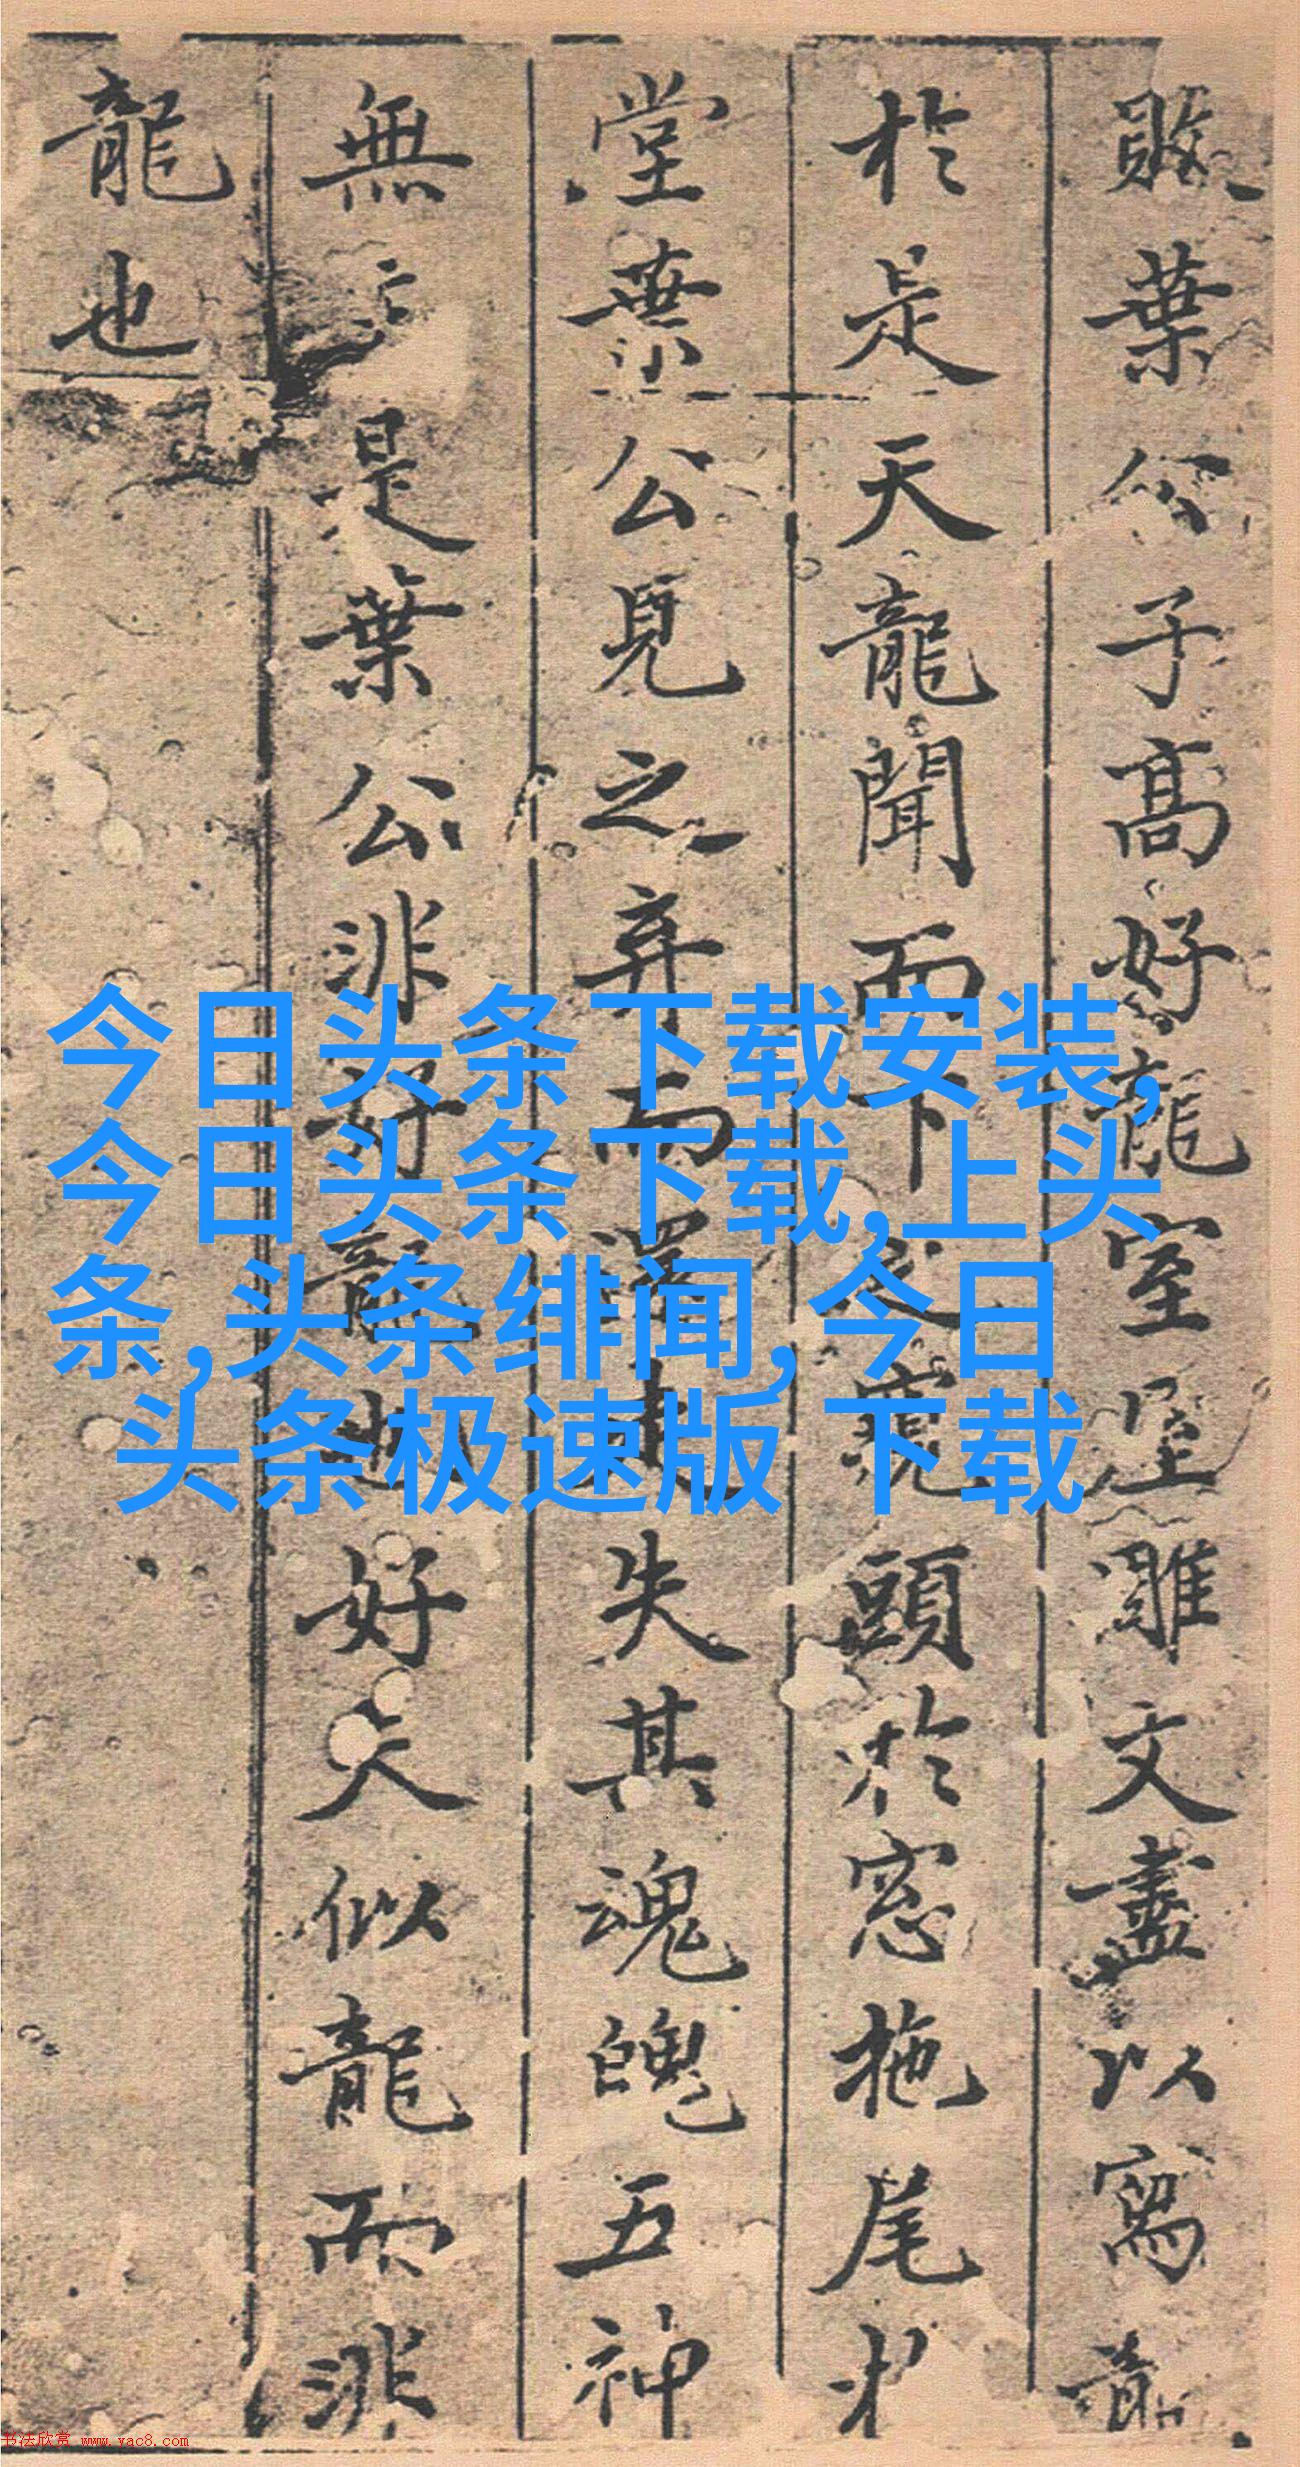 葉公子高好龍室屋雕文盡以寫龍
於是天龍聞而下之窺頭於窓拖尾於
堂葉公見之弃而還走失其魂魄五神
無主是葉公非好龍也好夫似龍而非
龍也
今日头条下载安装,
今日头条下载,上头
条,头条绯闻,今日
头条极速版 下载
书法欣赏 www.yac8.com